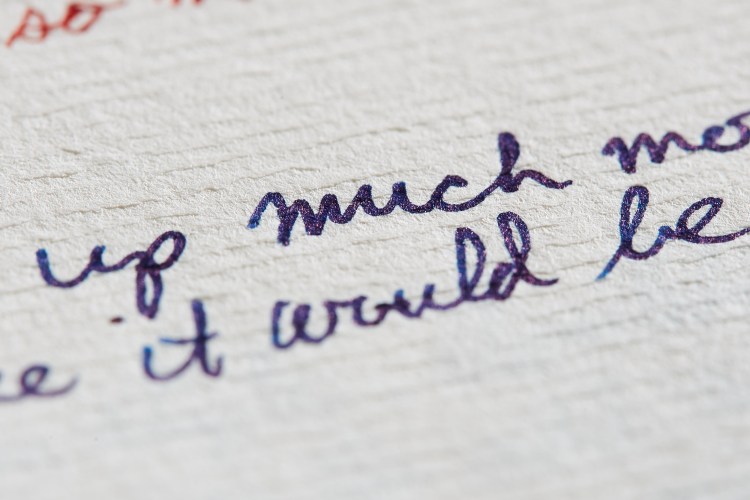 so
up much mo
ee it would be